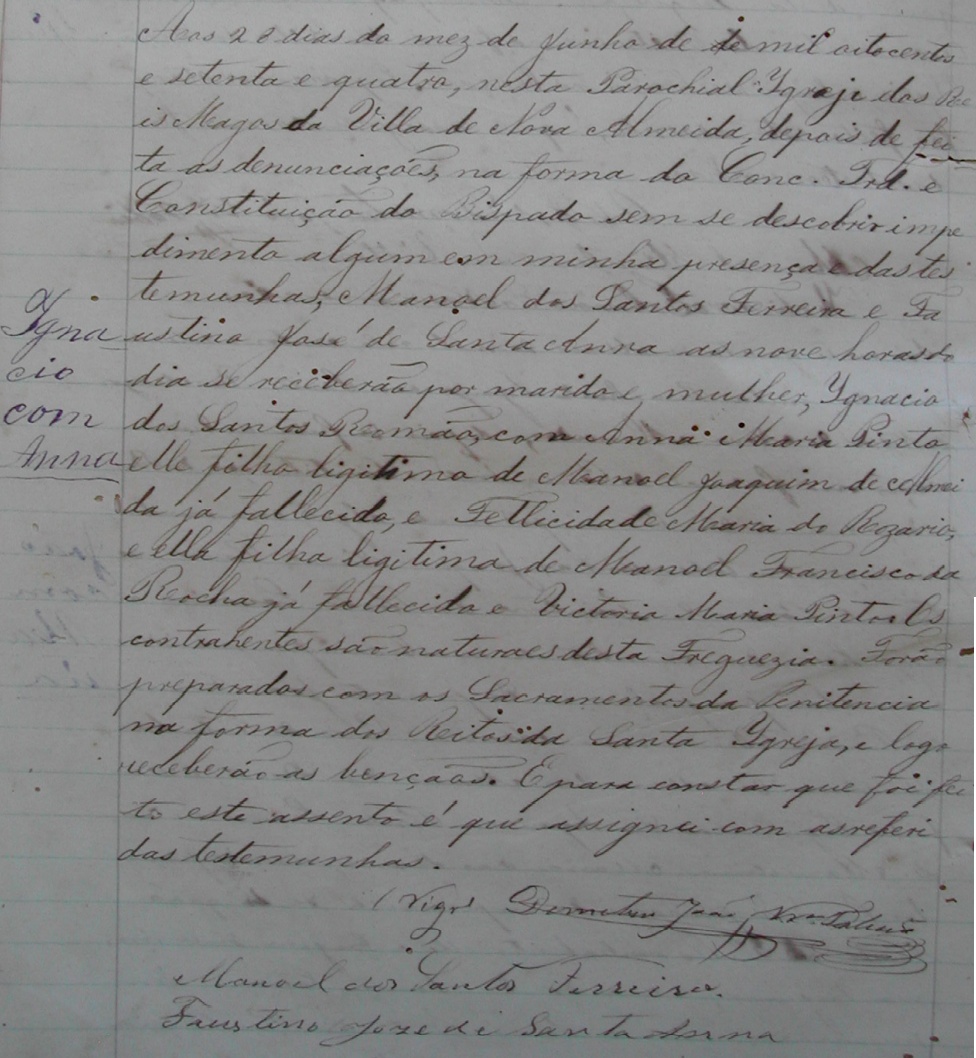 Aos 28 dias do mez de Junho de de mil oitocentos
e setenta e quatro, nesta Parochial Ygreji dos Re
is Magos da Villa de Nova Almeida, depois de fei
ta as denunciações, na forma do Conc. Trd. e
Constituição do Bispado sem se descobrir impe
dimento algum em minha presença e das tes
temunhas, Manoel dos Santos Ferreira e Fa
ustino José de Santa Anna as nove horas do
dia se receberão por marido e mulher, Ygnacio
dos Santos Romão, com Anna Maria Pinto
elle filho ligitimo de Manoel Joaquim de Almei
da já fallecido, e Fellicidade Maria do Rozario,
e ella filha ligitima de Manoel Francisco da
Rocha já fallecido e Victoria Maria Pinto Os
contrahentes são naturaes desta Freguezia. Forão
preparados com os Sacramentos da Penitencia
na forma dos Ritos da Santa Ygreja, e logo
receberão as bençaõs. E para constar que foi fei
to este assento é que assignei com as referi
das testemunhas.
Vigr.º João
Manoel dos Santos Ferreira.
Faustino Joze de Santa Anna
Ygna
cio
com
Anna